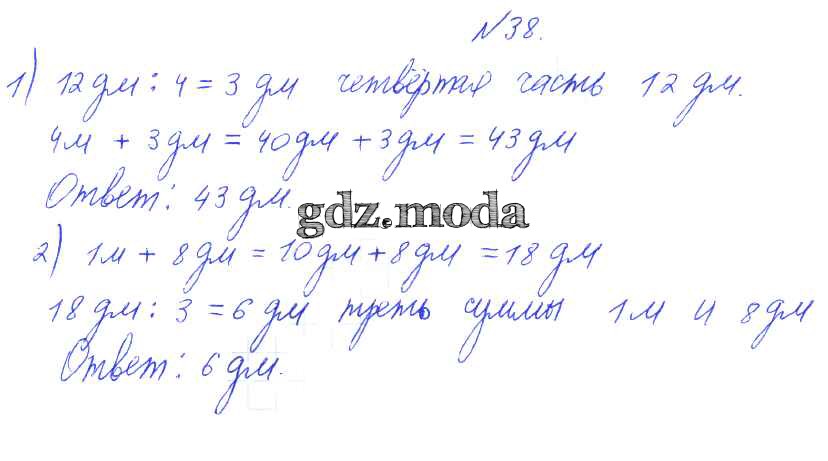 №38.
1) 12 дм : 4 = 3 дм четвёртая часть 12 дм.
4м + 3 дм = 40дм + 3дм = 43дм
Ответ: 43 дм.
gdz.moda
2) 1м + 8 дм = 10дм + 8дм = 18 дм
18 дм : 3 = 6 дм треть суммы 1м и 8 дм
Ответ: 6 дм.